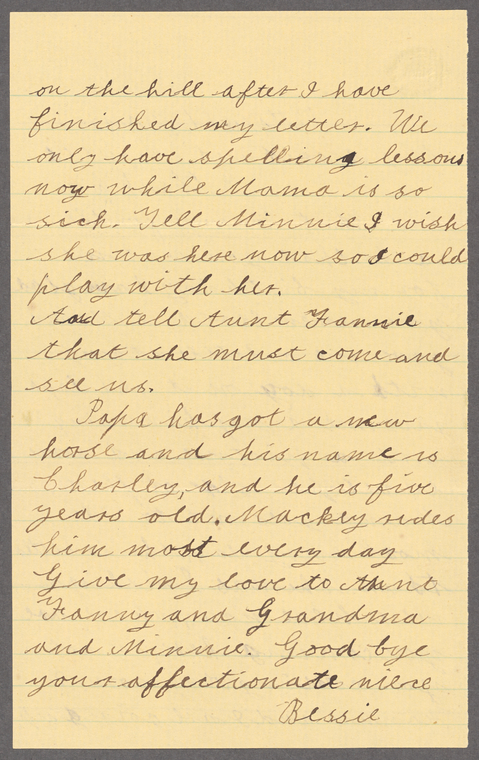 on the hill after I have
finished my letter. We
only have spelling lessons
now while Mama is so
sick. Tell Minnie I wish
she was here now so I could
play with her.
And tell Aunt Fannie
that she must come and
see us.
Papa has got a new
horse and his name is
Charley, and he is five
years old. Mackey rides
him most every day
Give my love to Aunt
Fanny and Grandma
and Minnie. Good bye
your affectionate niece
Bessie